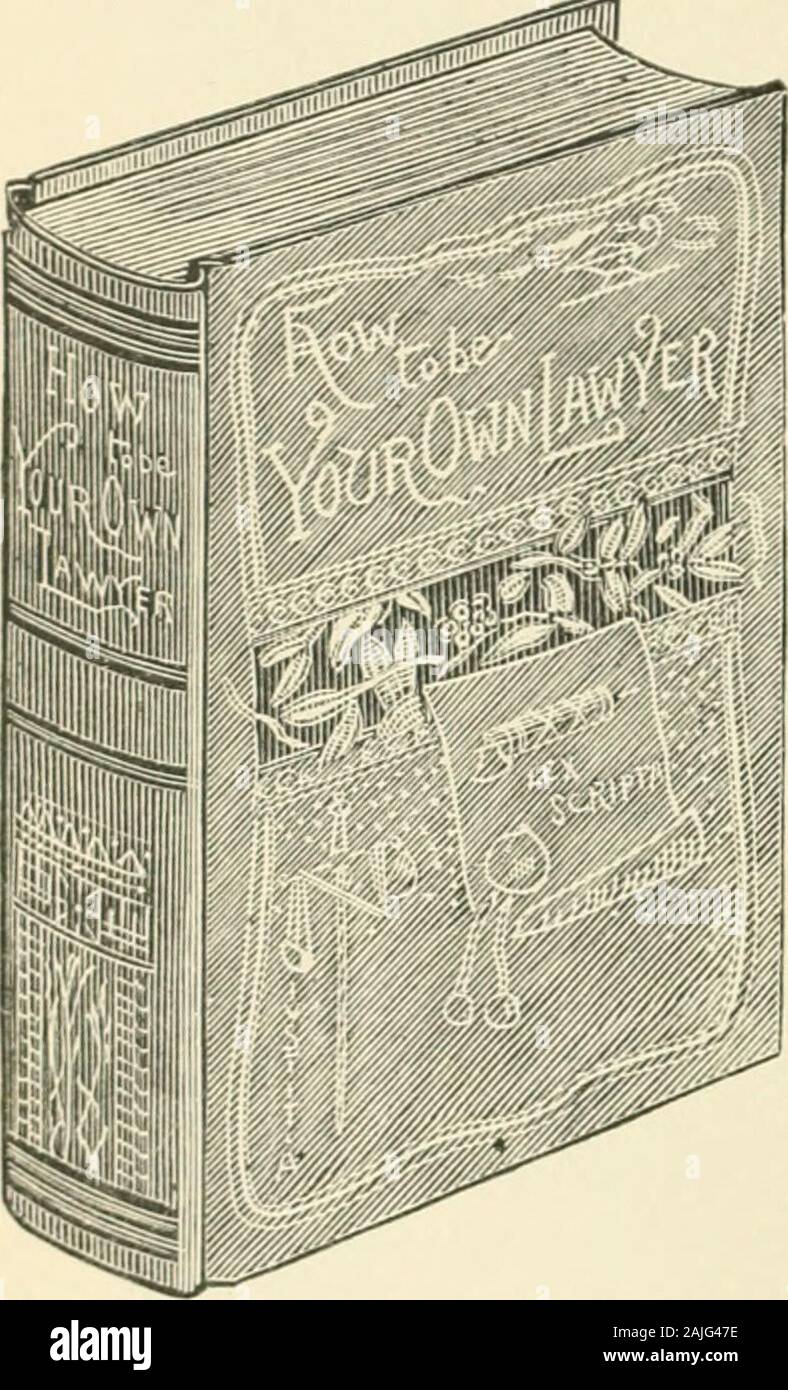 HOW
to be
YOUR OWN
LAWYER
How
to be
YOUR OWN LAWYER
LEX
SCRIPTA
JUSTITIA
alamy
Image ID: 2AJG47E
www.alamy.com